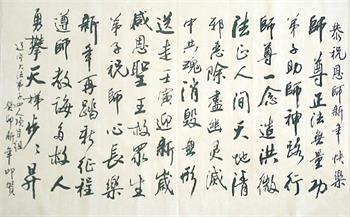 恭祝新年快樂
師尊正法無量功
弟子助師神路行
師尊一念造洪微
法正人間天地清
邪惡除盡幽灵滅
中共魂消毁無形
送走壬寅迎新歲
感恩聖王救眾生
弟子祝師心長樂
新年再踏新征程
遵師教誨多救人
勇攀天梯步步昇
辽宁大法四人项目组
癸卯新年叩賀